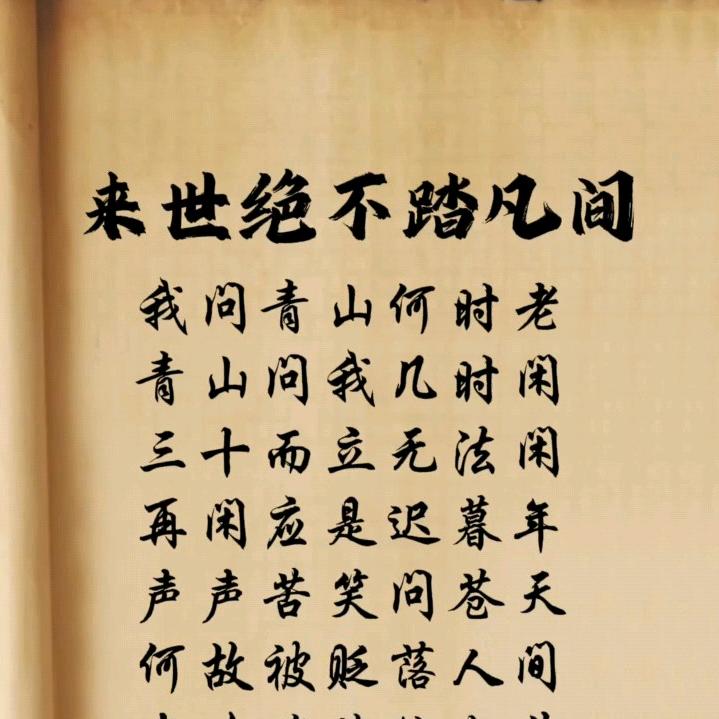 来世绝不踏凡间
我问青山何时老
青山问我几时闲
三十而立无法闲
再闲应是迟暮年
声声苦笑问苍天
何故被贬落人间